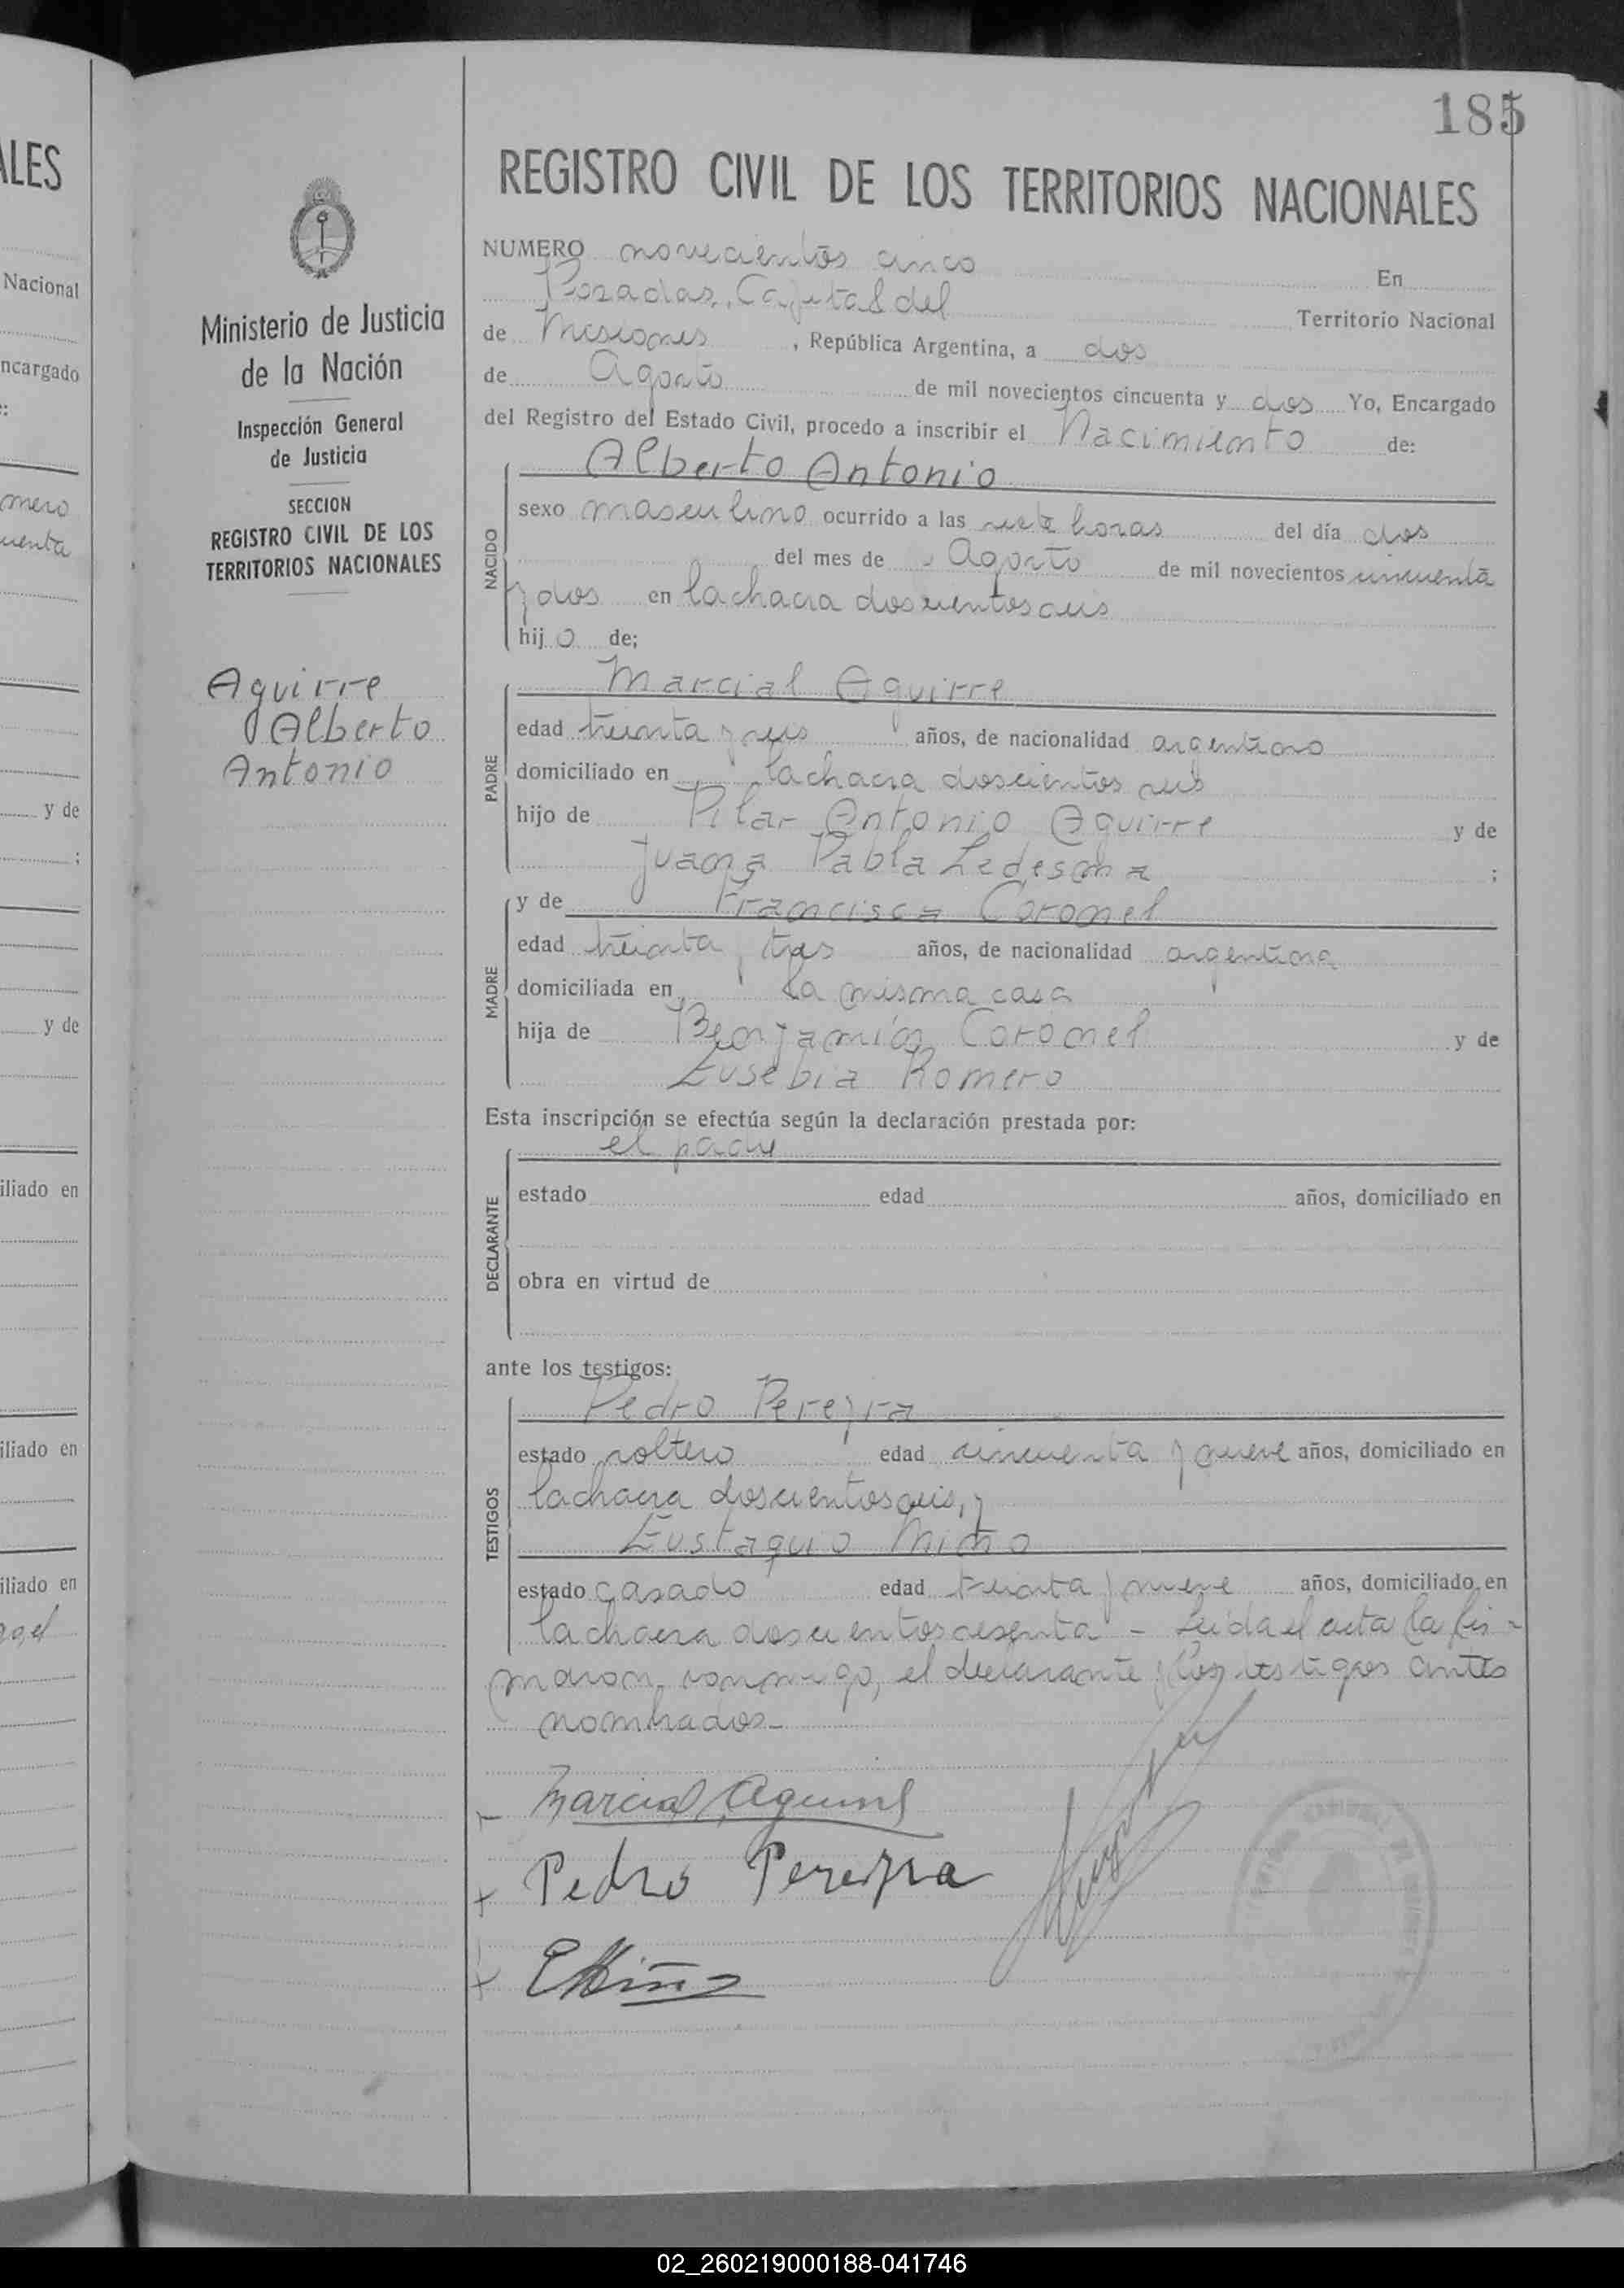 185
ALES
REGISTRO CIVIL DE LOS TERRITORIOS NACIONALES
Nacional
ncargado
mero
uenta
y de
y de
iliado en
iliado en
iliado en
Ministerio de Justicia
de la Nación
Inspección General
de Justicia
SECCION
REGISTRO CIVIL DE LOS
TERRITORIOS NACIONALES
Aguirre
Alberto
Antonio
NUMERO novecientos cinco En
Posadas, Capital del Territorio Nacional
de Misiones, República Argentina, a dos
de Agosto de mil novecientos cincuenta y dos Yo, Encargado
del Registro del Estado Civil, procedo a inscribir el Nacimiento de:
NACIDO
Alberto Antonio
sexo masculino ocurrido a las siete horas del día dos
del mes de Agosto de mil novecientos cincuenta
y dos en la chacra doscientos seis
hijo de;
PADRE
Marcial Aguirre
edad treinta y seis años, de nacionalidad argentino
domiciliado en la chacra doscientos seis
hijo de Pilar Antonio Aguirre y de
Juana Pabla Ledesma ;
MADRE
y de Francisca Coronel
edad treinta y tres años, de nacionalidad argentina
domiciliada en la misma casa
hija de Benjamín Coronel y de
Eusebia Romero
Esta inscripción se efectúa según la declaración prestada por:
DECLARANTE
el padre
estado edad años, domiciliado en
obra en virtud de
ante los testigos:
TESTIGOS
Pedro Pereyra
estado soltero edad cincuenta y nueve años, domiciliado en
la chacra doscientos seis, y
Eustaquio Miño
estado casado edad treinta y nueve años, domiciliado en
la chacra doscientos sesenta - Leída el acta la fir-
maron conmigo, el declarante y los testigos antes
nombrados-
Marcial Aguirre
Pedro Pereyra
E Miño
02_260219000188-041746